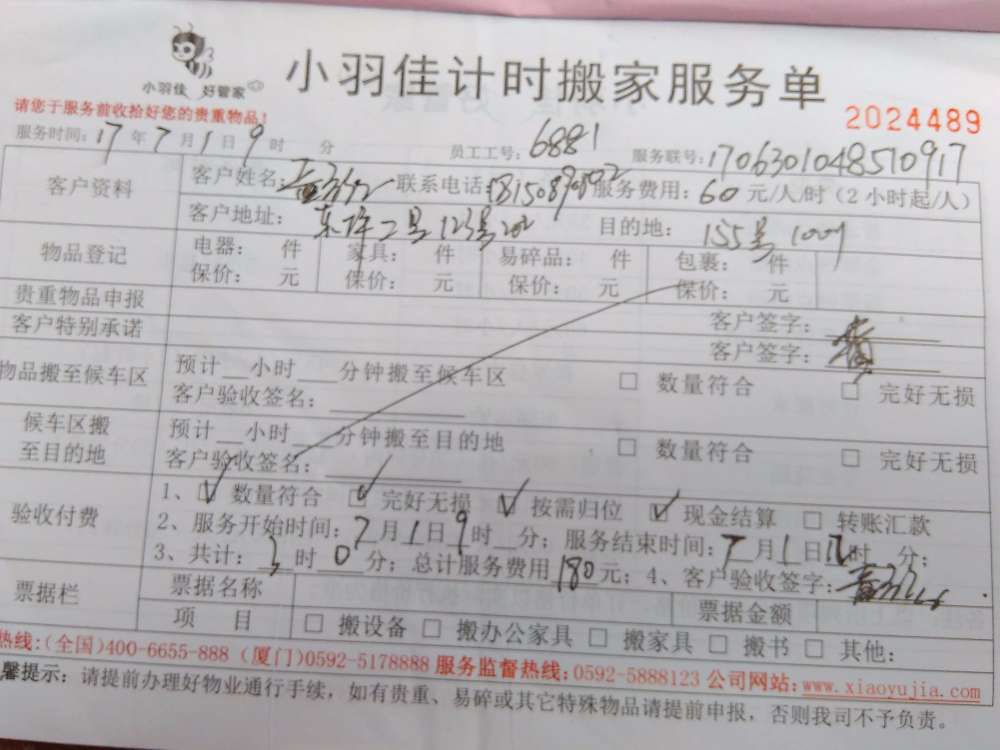 小羽佳 好管家
小羽佳计时搬家服务单
请您于服务前收拾好您的贵重物品!
2024489
服务时间: 17 年 7 月 1 日 9 时 分 员工工号: 6881 服务联号: 1706301048510917
客户资料 客户姓名: 联系电话: 服务费用: 60 元/人/时(2小时起/人)
客户地址: 二号123号202 目的地: 155号1009
物品登记 电器: 件 家具: 件 易碎品: 件 包裹: 件
保价: 元 保价: 元 保价: 元 保价: 元
贵重物品申报 客户签字: 黄
客户特别承诺 客户签字:
物品搬至候车区 预计__小时___分钟搬至候车区 □ 数量符合 □ 完好无损
客户验收签名:
候车区搬至目的地 预计__小时___分钟搬至目的地 □ 数量符合 □ 完好无损
客户验收签名:
验收付费 1、☑ 数量符合 ☑ 完好无损 ☑ 按需归位 ☑ 现金结算 □ 转账汇款
2、服务开始时间: 7 月 1 日 9 时__分; 服务结束时间: 7 月 1 日 12 时 分;
3、共计: 3 时 0 分; 总计服务费用 180 元; 4、客户验收签字:
票据栏 票据名称 票据金额
项 目 □ 搬设备 □ 搬办公家具 □ 搬家具 □ 搬书 □ 其他:
热线:(全国)400-6655-888 (厦门)0592-5178888 服务监督热线:0592-5888123 公司网站:www.xiaoyujia.com
馨提示: 请提前办理好物业通行手续, 如有贵重、易碎或其它特殊物品请提前申报, 否则我司不予负责。